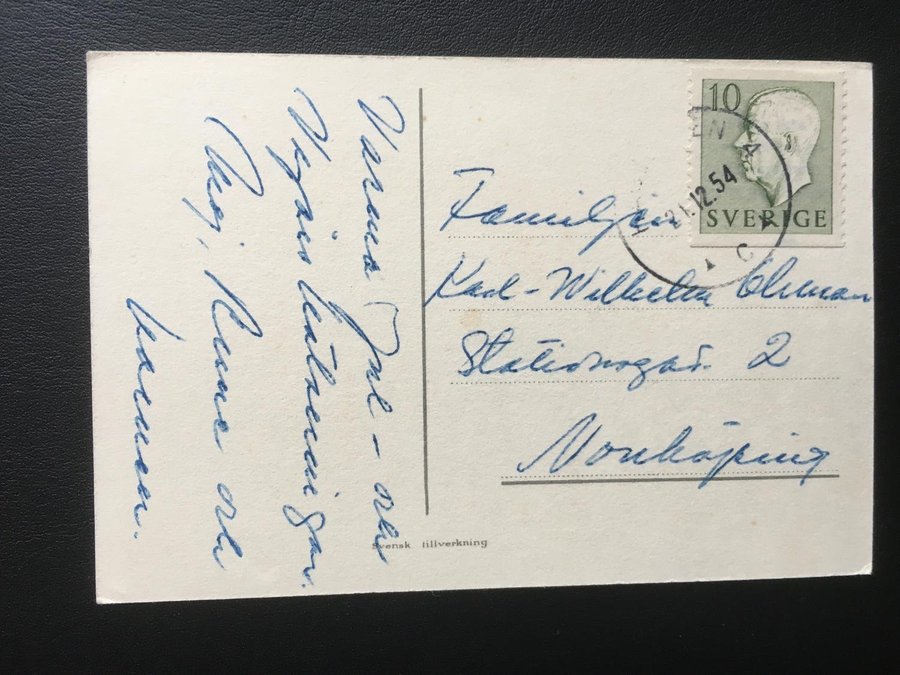 Varma Jul- och
Vegårshälsningar
Maj, Rune och
10
SVERIGE
21.12.54
C
Familjen
Karl-Wilhelm Ohman
Stationsgat. 2
Norrköping
Svensk tillverkning